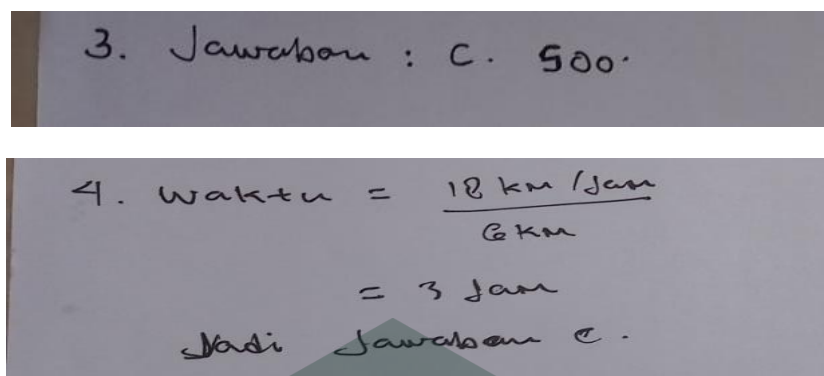 3. Jawaban : C. 500.
4. Waktu = 18 km / Jam
6 km
= 3 Jam
Jadi Jawaban C.